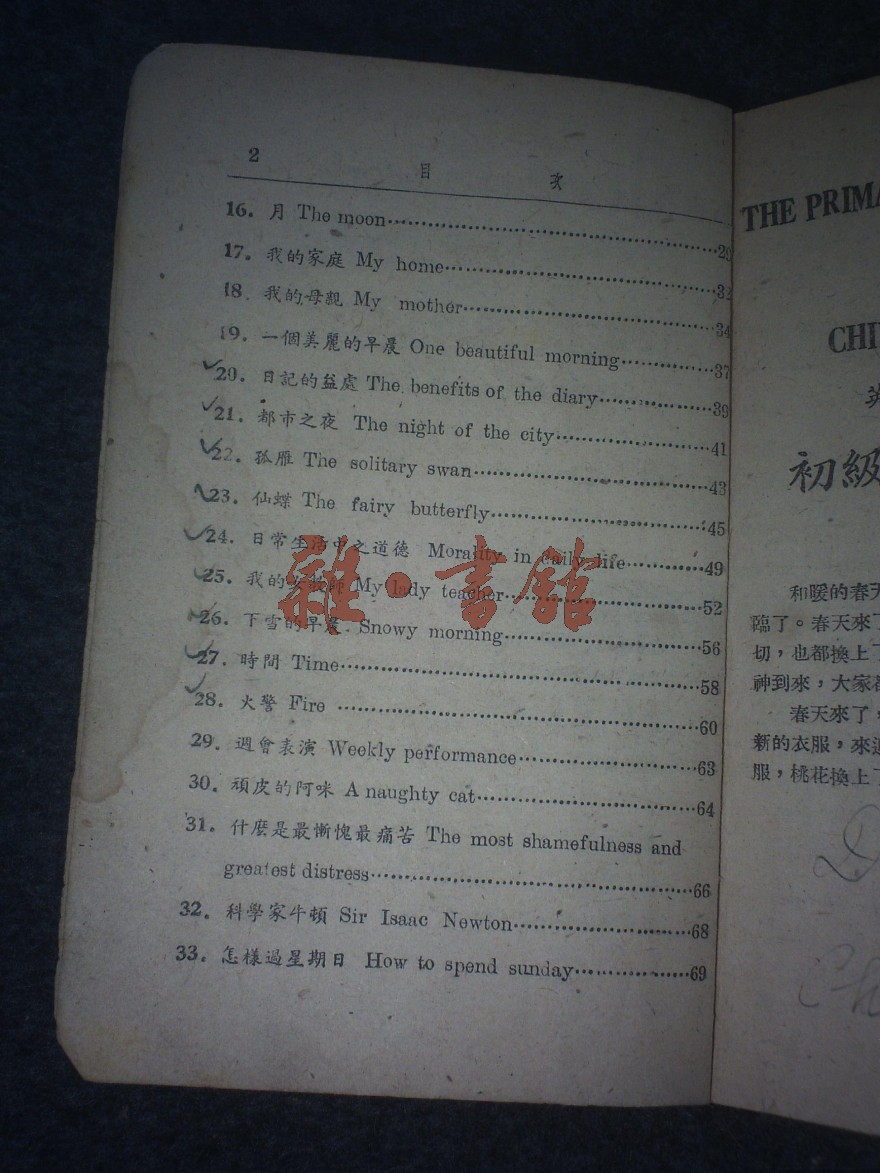 2
目 次
16. 月 The moon 29
17. 我的家庭 My home 32
18. 我的母親 My mother 34
19. 一個美麗的早晨 One beautiful morning 37
20. 日記的益處 The benefits of the diary 39
21. 都市之夜 The night of the city 41
22. 孤雁 The solitary swan 43
23. 仙蝶 The fairy butterfly 45
24. 日常生活中之道德 Morality in daily life 49
25. 我的女教師 My lady teacher 52
26. 下雪的早晨 Snowy morning 56
27. 時間 Time 58
28. 火警 Fire 60
29. 週會表演 Weekly performance 63
30. 頑皮的阿咪 A naughty cat 64
31. 什麼是最慚愧最痛苦 The most shamefulness and
greatest distress 66
32. 科學家牛頓 Sir Isaac Newton 68
33. 怎樣過星期日 How to spend sunday 69
雜·書館
THE PRIMA
CHI
英
初級
和暖的春天
臨了。春天來了
切，也都換上了
神到來，大家
春天來了，
新的衣服，來
服，桃花換上了